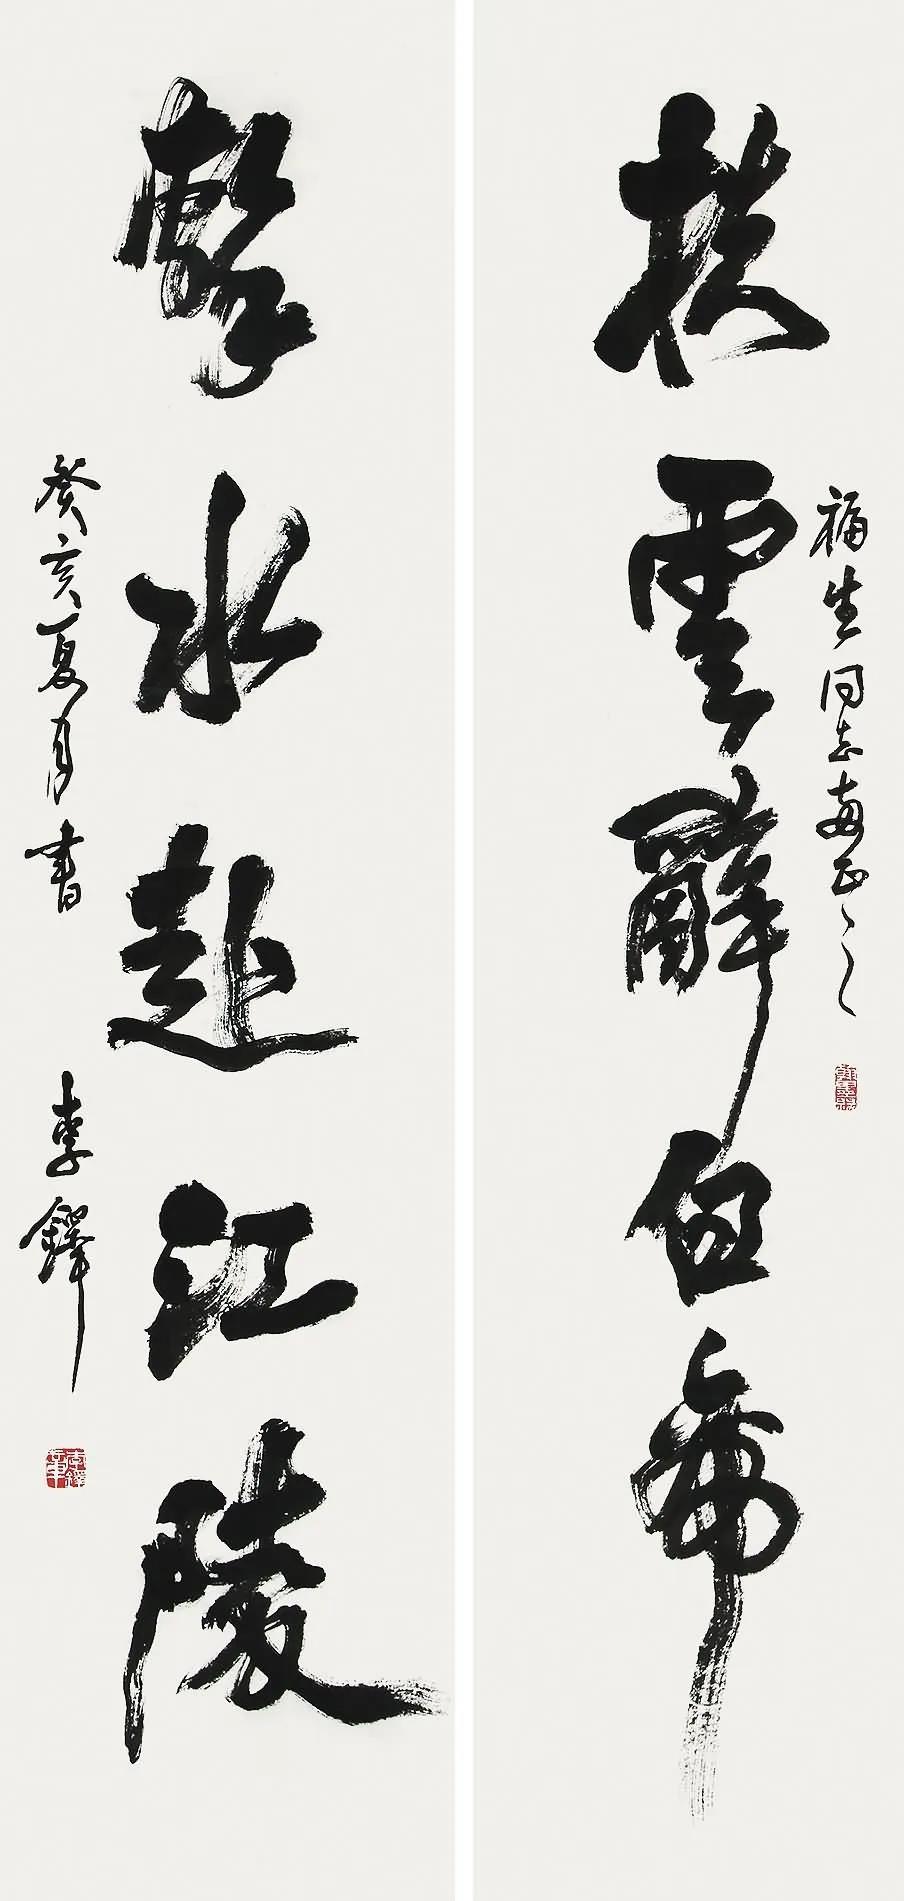 福生同志正之
雲辭白帝
擊水赴江陵
癸亥夏月書 李鐸